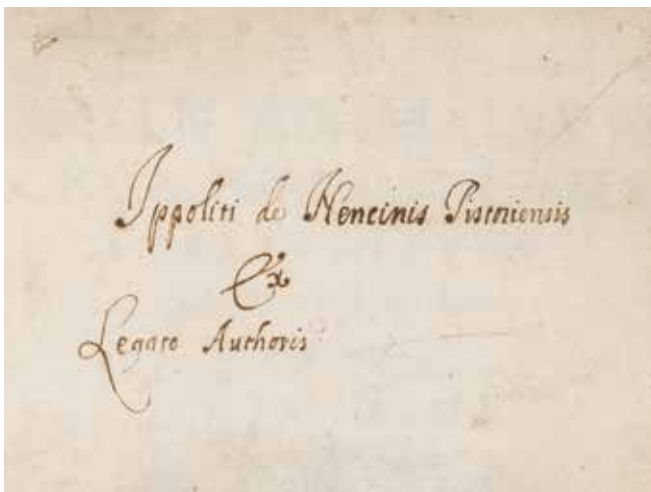 Ippoliti de Nencinis Pistoriensis
Ex
Legato Authoris